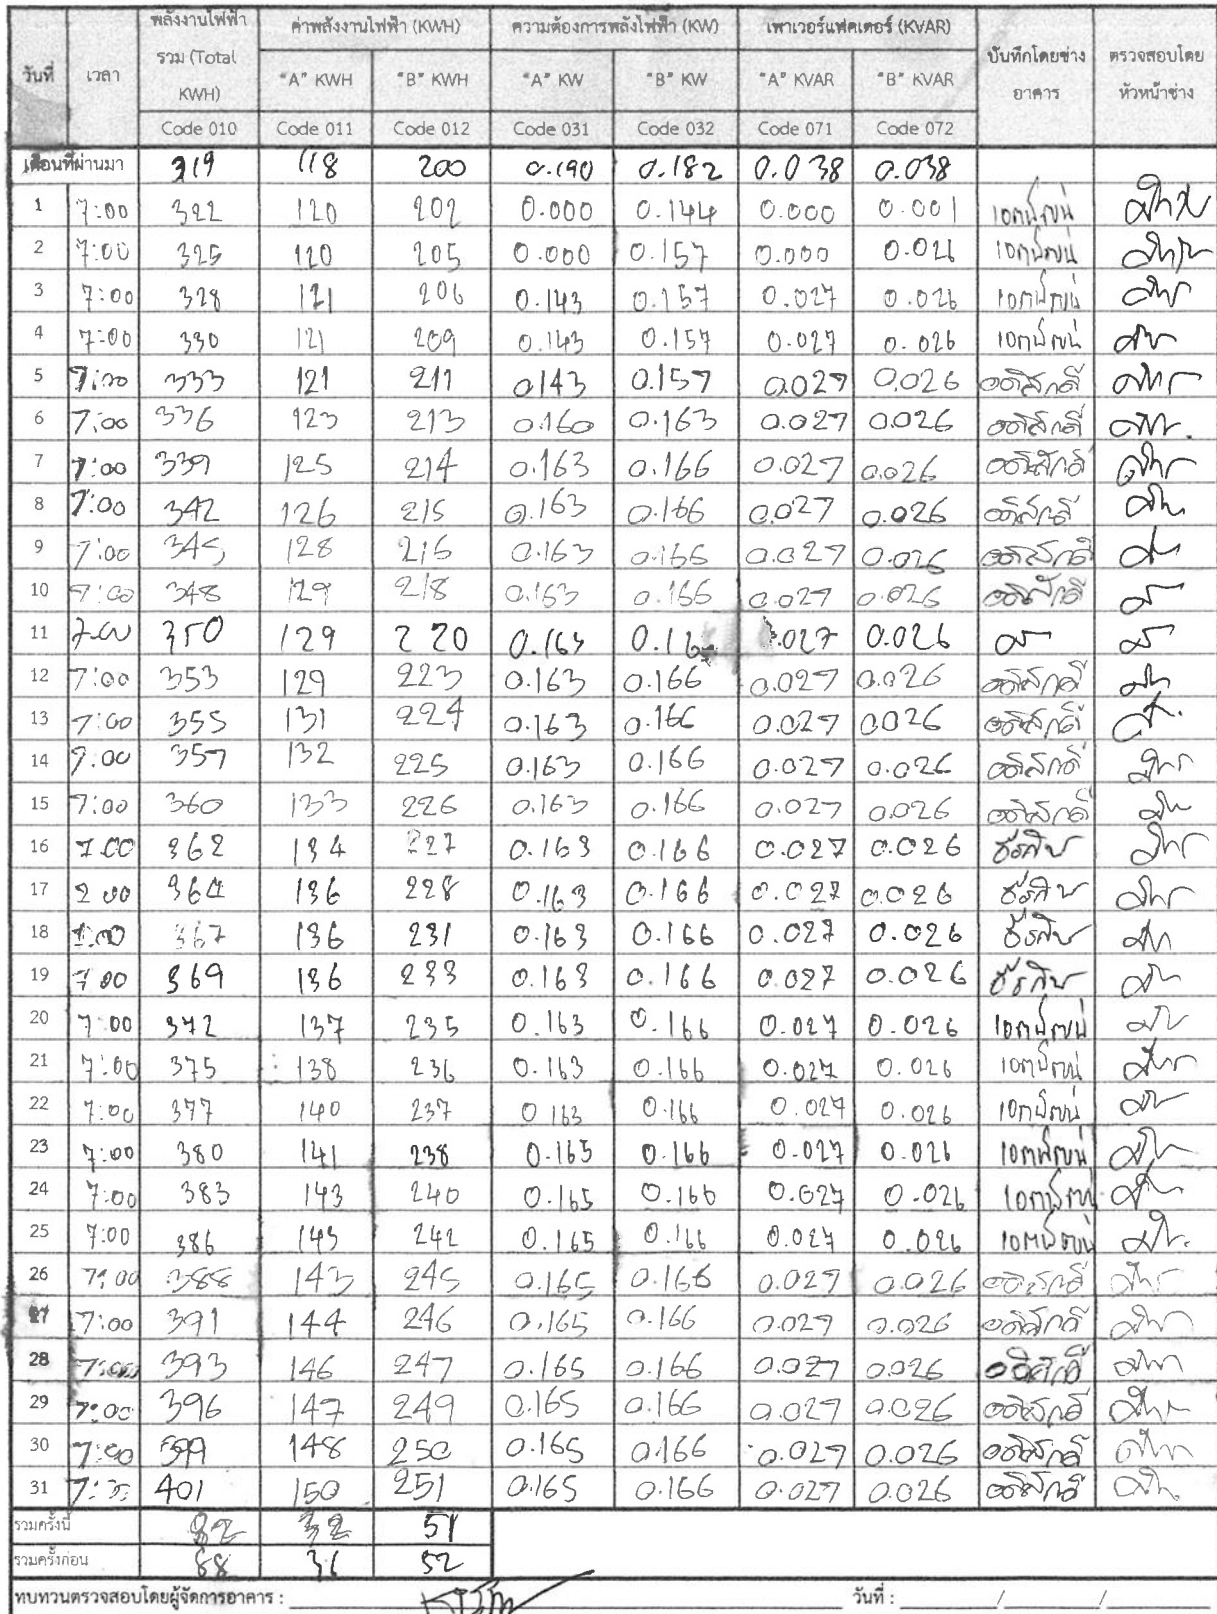 วันที่ เวลา พลังงานไฟฟ้ารวม (Total KWH) ค่าพลังงานไฟฟ้า (KWH) ความต้องการพลังไฟฟ้า (KW) เพาเวอร์แฟคเตอร์ (KVAR) บันทึกโดยช่างอาคาร ตรวจสอบโดยหัวหน้าช่าง
"A" KWH "B" KWH "A" KW "B" KW "A" KVAR "B" KVAR
Code 010 Code 011 Code 012 Code 031 Code 032 Code 071 Code 072
เดือนที่ผ่านมา 319 118 200 0.190 0.182 0.038 0.038
1 7:00 322 120 202 0.000 0.144 0.000 0.001
2 7:00 325 120 205 0.000 0.157 0.000 0.026
3 7:00 328 121 206 0.143 0.157 0.027 0.026
4 7:00 330 121 209 0.143 0.157 0.027 0.026
5 7:00 333 121 211 0.143 0.157 0.027 0.026 อดิศักดิ์
6 7:00 336 123 213 0.160 0.163 0.027 0.026 อดิศักดิ์
7 7:00 339 125 214 0.163 0.166 0.027 0.026 อดิศักดิ์
8 7:00 342 126 215 0.163 0.166 0.027 0.026 อดิศักดิ์
9 7:00 345 128 216 0.163 0.166 0.027 0.026 อดิศักดิ์
10 7:00 348 129 218 0.163 0.166 0.027 0.026 อดิศักดิ์
11 7.00 350 129 220 0.163 0.027 0.026
12 7:00 353 129 223 0.163 0.166 0.027 0.026 อดิศักดิ์
13 7:00 355 131 224 0.163 0.166 0.027 0.026 อดิศักดิ์
14 7:00 357 132 225 0.163 0.166 0.027 0.026 อดิศักดิ์
15 7:00 360 133 226 0.163 0.166 0.027 0.026 อดิศักดิ์
16 7.00 362 134 227 0.163 0.166 0.027 0.026
17 7 00 364 136 228 0.163 0.166 0.027 0.026
18 7.00 367 136 231 0.163 0.166 0.027 0.026
19 7 00 369 136 233 0.163 0.166 0.027 0.026
20 7:00 372 137 235 0.163 0.166 0.027 0.026
21 7:00 375 138 236 0.163 0.166 0.027 0.026
22 7:00 377 140 237 0.163 0.166 0.027 0.026
23 7:00 380 141 238 0.165 0.166 0.027 0.026
24 7:00 383 143 240 0.165 0.166 0.027 0.026
25 7:00 386 143 242 0.165 0.166 0.027 0.026
26 7:00 388 143 245 0.165 0.166 0.027 0.026 อดิศักดิ์
27 7:00 391 144 246 0.165 0.166 0.027 0.026 อดิศักดิ์
28 7:00 393 146 247 0.165 0.166 0.027 0.026 อดิศักดิ์
29 7:00 396 147 249 0.165 0.166 0.027 0.026 อดิศักดิ์
30 7:00 399 148 250 0.165 0.166 0.027 0.026 อดิศักดิ์
31 401 150 251 0.165 0.166 0.027 0.026 อดิศักดิ์
รวมครั้งนี้ 82 32 51
รวมครั้งก่อน 88 36 52
ทบทวนตรวจสอบโดยผู้จัดการอาคาร : วันที่ : / /